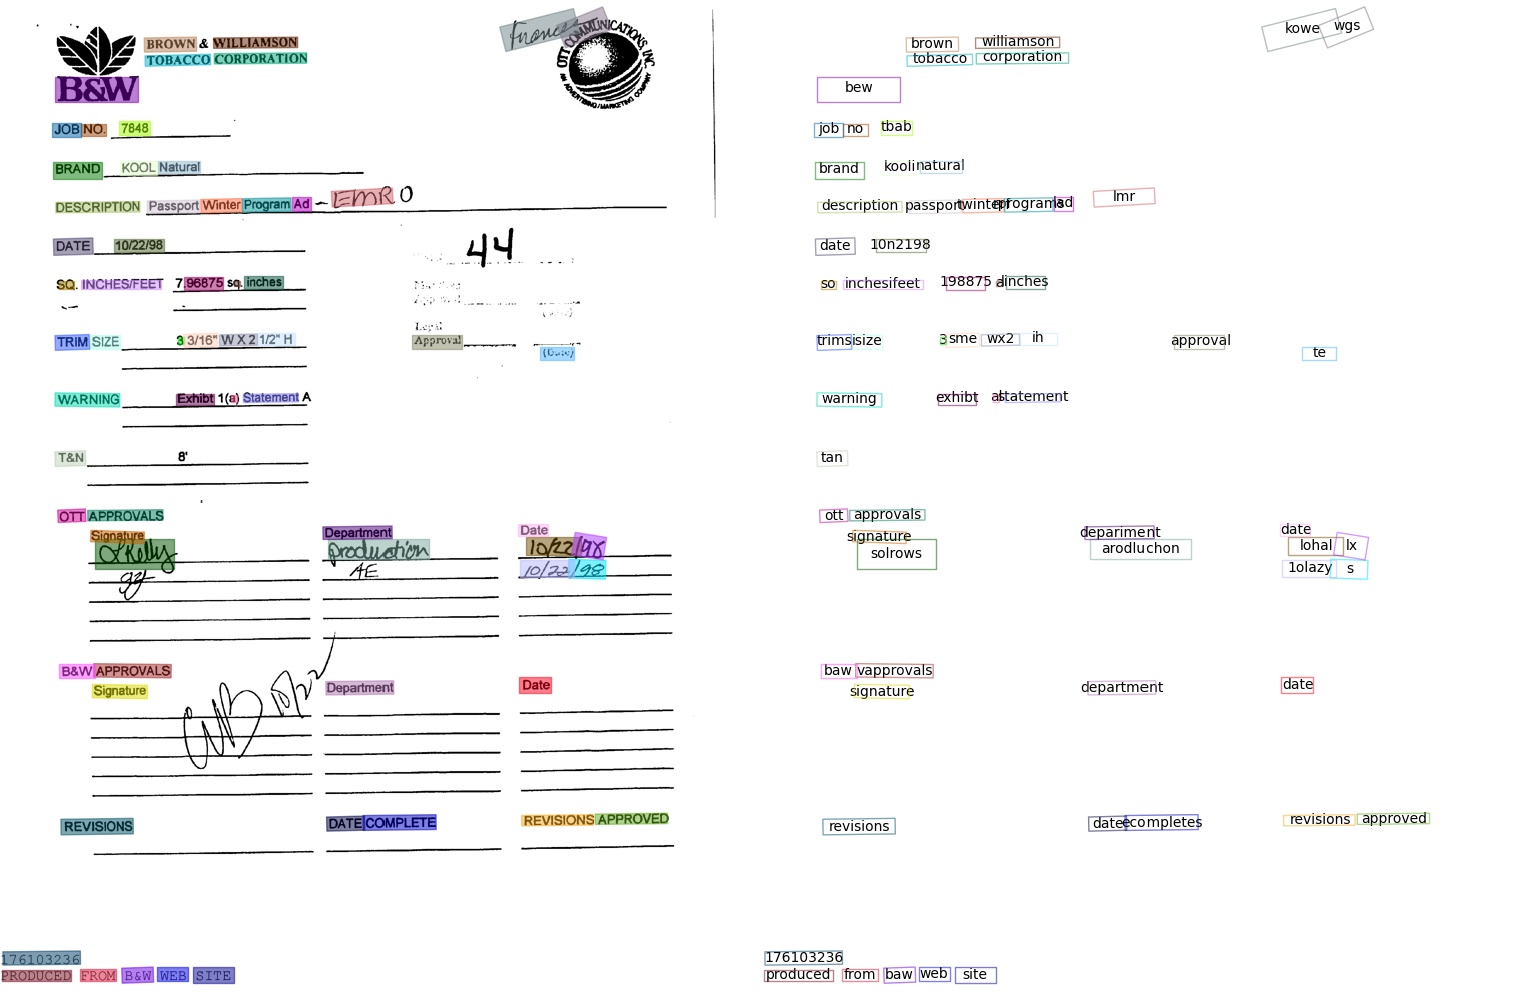 Frances
BROWN & WILLIAMSON
TOBACCO CORPORATION
B&W
OTT COMMUNICATIONS, INC.
AN ADVERTISING/MARKETING COMPANY
JOB NO. 7848
BRAND KOOL Natural
DESCRIPTION Passport Winter Program Ad - EMRO
DATE 10/22/98
44
SQ. INCHES/FEET 7.96875 sq. inches
Legal
Approval
(Date)
TRIM SIZE 3 3/16" W X 2 1/2" H
WARNING Exhibt 1(a) Statement A
T&N 8'
OTT APPROVALS
Signature Department Date
L Kelly production 10/22/98
AE 10/22/98
B&W APPROVALS
Signature Department Date
10/22
REVISIONS DATE COMPLETE REVISIONS APPROVED
176103236
PRODUCED FROM B&W WEB SITE
brown williamson
tobacco corporation
kowe wgs
bew
job no tbab
brand kooli natural
description passport winter programs ad lmr
date 10n2198
so inchesifeet 198875 dinches
trimsi size 3 sme wx2 ih approval
te
warning exhibt as statement
tan
ott approvals
signature depariment date
solrows arodluchon lohal lx
1olazy s
baw vapprovals
signature department date
revisions date ecompletes revisions approved
176103236
produced from baw web site